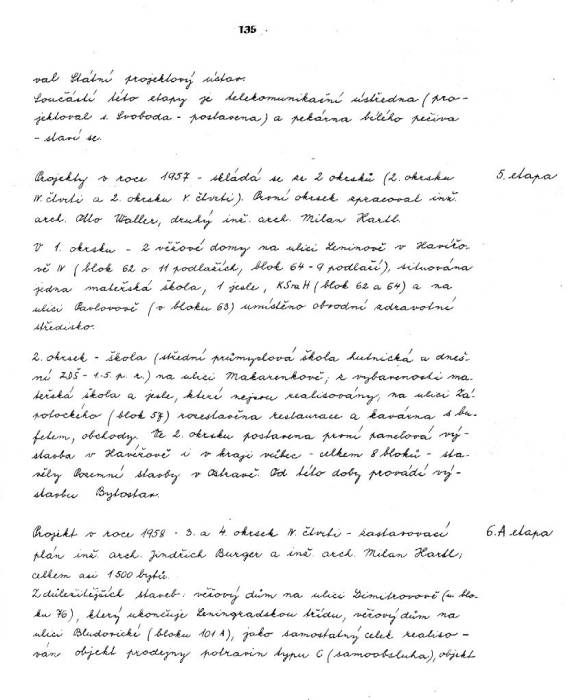 135
val Státní projektový ústav.
Součástí této etapy je telekomunikační ústředna (pro-
jektoval s. Svoboda - postavena) a pekárna bílého pečiva
- staví se.
Projekty v roce 1957 - skládá se ze 2 okrsků (2. okrsku
5. etapa
IV. čtvrti a 2. okrsku V. čtvrti). První okrsek zpracoval inž.
arch. Otto Waller, druhý inž. arch. Milan Hartl.
V 1. okrsku - 2 věžové domy na ulici Leninově v Havířo-
vě IV (blok 62 o 11 podlažích, blok 64 - 9 podlaží), situována
jedna mateřská škola, 1 jesle, KSMH (blok 62 a 64) a na
ulici Pavlovově (v bloku 63) umístěno obvodní zdravotní
středisko.
2. okrsek - škola (střední průmyslová škola hutnická a dneš-
ní ZDŠ - 1.5. p. r.) na ulici Makarenkově; z vybavenosti ma-
teřská škola a jesle, které nejsou realisovány, na ulici Zá-
potockého (blok 57) rozestavěna restaurace a kavárna s bu-
fetem, obchody. Ve 2. okrsku postavena první panelová vý-
stavba v Havířově i v kraji vůbec - celkem 8 bloků - sta-
věly Pozemní stavby v Ostravě. Od této doby provádí vý-
stavbu Bytostav.
Projekt v roce 1958 - 3. a 4. okrsek IV. čtvrti - zastavovací
6. A etapa
plán inž. arch. Jindřich Burger a inž. arch. Milan Hartl;
celkem asi 1500 bytů.
Z důležitějších staveb: věžový dům na ulici Dimitrovově (u blo-
ku 76), který ukončuje Leningradskou třídu, věžový dům na
ulici Bludovické (bloku 101 A), jako samostatný celek realiso-
ván objekt prodejny potravin typu C (samoobsluha), objekt